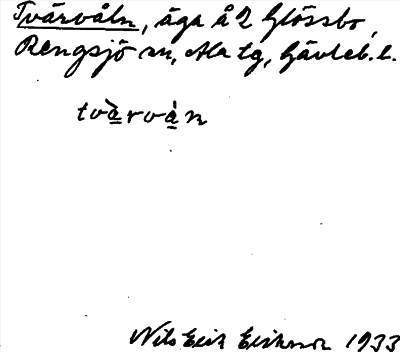 Tvärvåln, äga å 2 Glössbo,
Rengsjö sn, Ala tg, Gävleb. l.
tvàrvån
Nils Erik Eriksson 1933